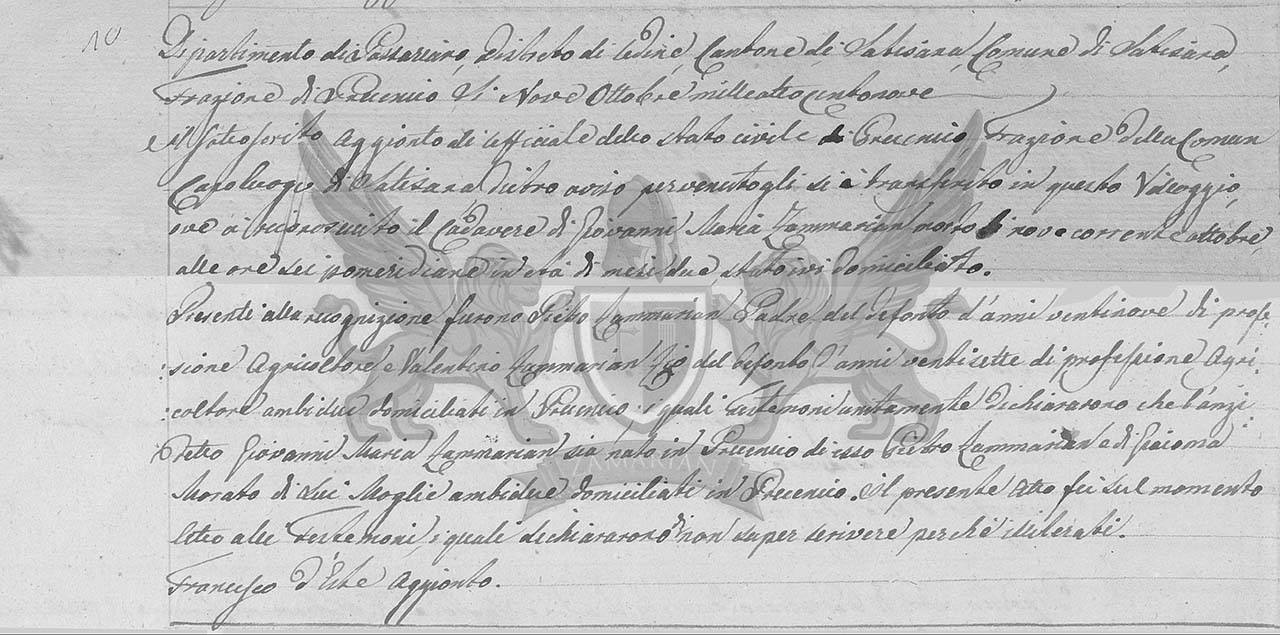 10
Dipartimento di Passariano, Distreto di Udine, Cantone di Latisana, Comune di Latisana,
Frazione di Precenico Li Nove Ottobre milleotto centonove
Il Sottoscrito Aggionto di ufficiale dello stato civile di Precenico Frazione della Comun
Capoluogo di Latisana dietro aviso pervenutogli si è transferito in questo Vileggio,
ove à riconosciuto il Cadavere di Giovanni Maria Zammarian morto li nove corrente ottobre,
alle ore sei pomeridiane in età di mesi due stato ivi domiciliato.
Presenti alla recognizione furono Pietro Zammarian Padre del defonto d'anni ventinove di profe
sione Agricoltore e Valentino Zammarian Zio del defonto d'anni ventisette di professione Agri
coltore ambidue domiciliati in Precenico, i quali Testemoni unitamente dichiararono che l'anzi
detto Giovanni Maria Zammarian sia nato in Precenico di esso Pietro Zammarian e di Giacoma
Morato di Lui Moglie ambidue domiciliati in Precenico. Il presente Atto fei sul momento
letto alli Testemoni, i quali dichiararono di non saper scrivere perchè iliterati.
Francesco d'Este Aggionto.
ZAMARIAN